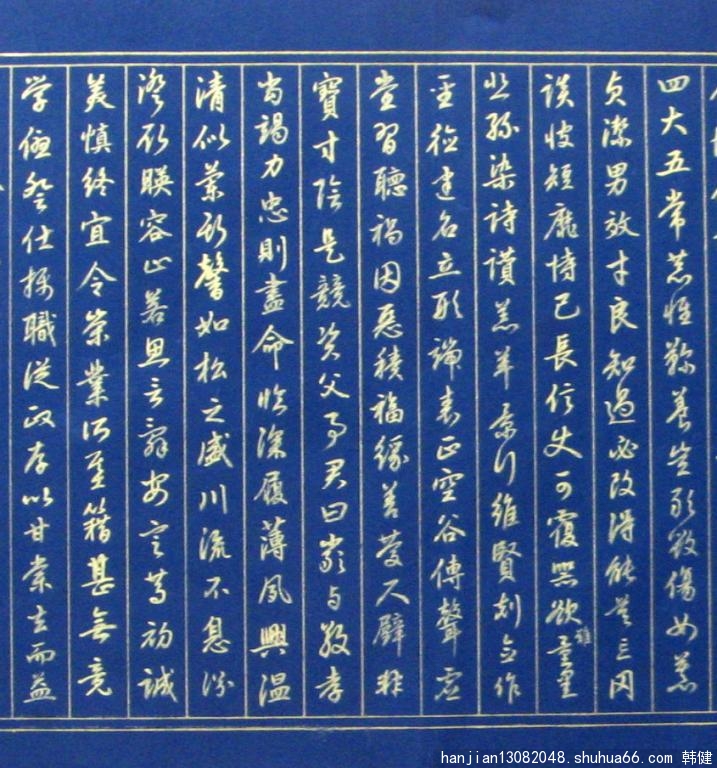 四大五常恭惟鞠養豈敢毀傷女慕
貞潔男效才良知過必改得能莫忘罔
談彼短靡恃己長信使可覆器欲難量墨
悲絲染詩讚羔羊景行維賢剋念作
聖德建名立形端表正空谷傳聲虛
堂習聽禍因惡積福緣善慶尺璧非
寶寸陰是競資父事君曰嚴與敬孝
當竭力忠則盡命臨深履薄夙興溫
清似蘭斯馨如松之盛川流不息淵
澄取暎容止若思言辭安定篤初誠
美慎終宜令榮業所基籍甚無竟
学優登仕攝職從政存以甘棠去而益
hanjian13082048.shuhua66.com 韩健